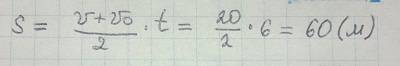 S = (v+v₀)/2 · t = 20/2 · 6 = 60 (м)